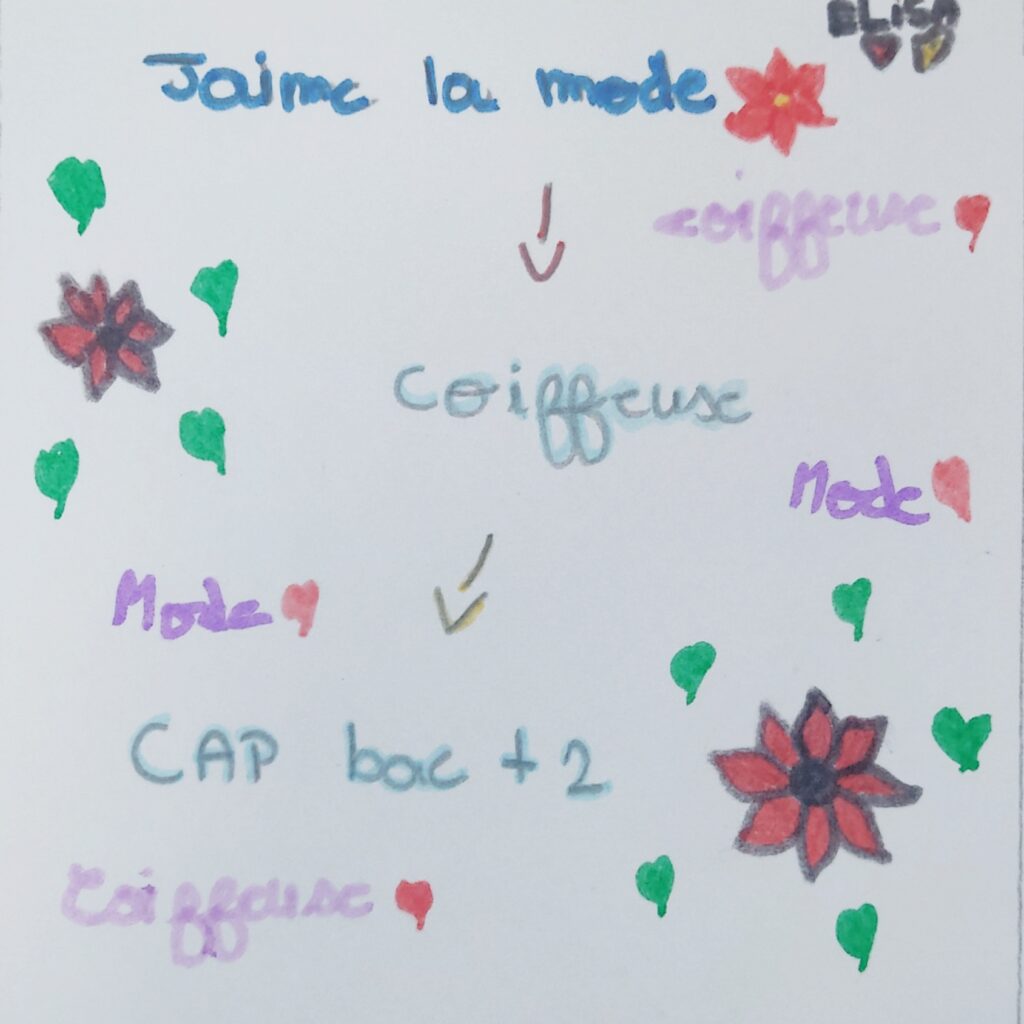 ELiSA
Jaime la mode
coiffeuse
Coiffeuse
Mode
Mode
CAP bac + 2
Coiffeuse